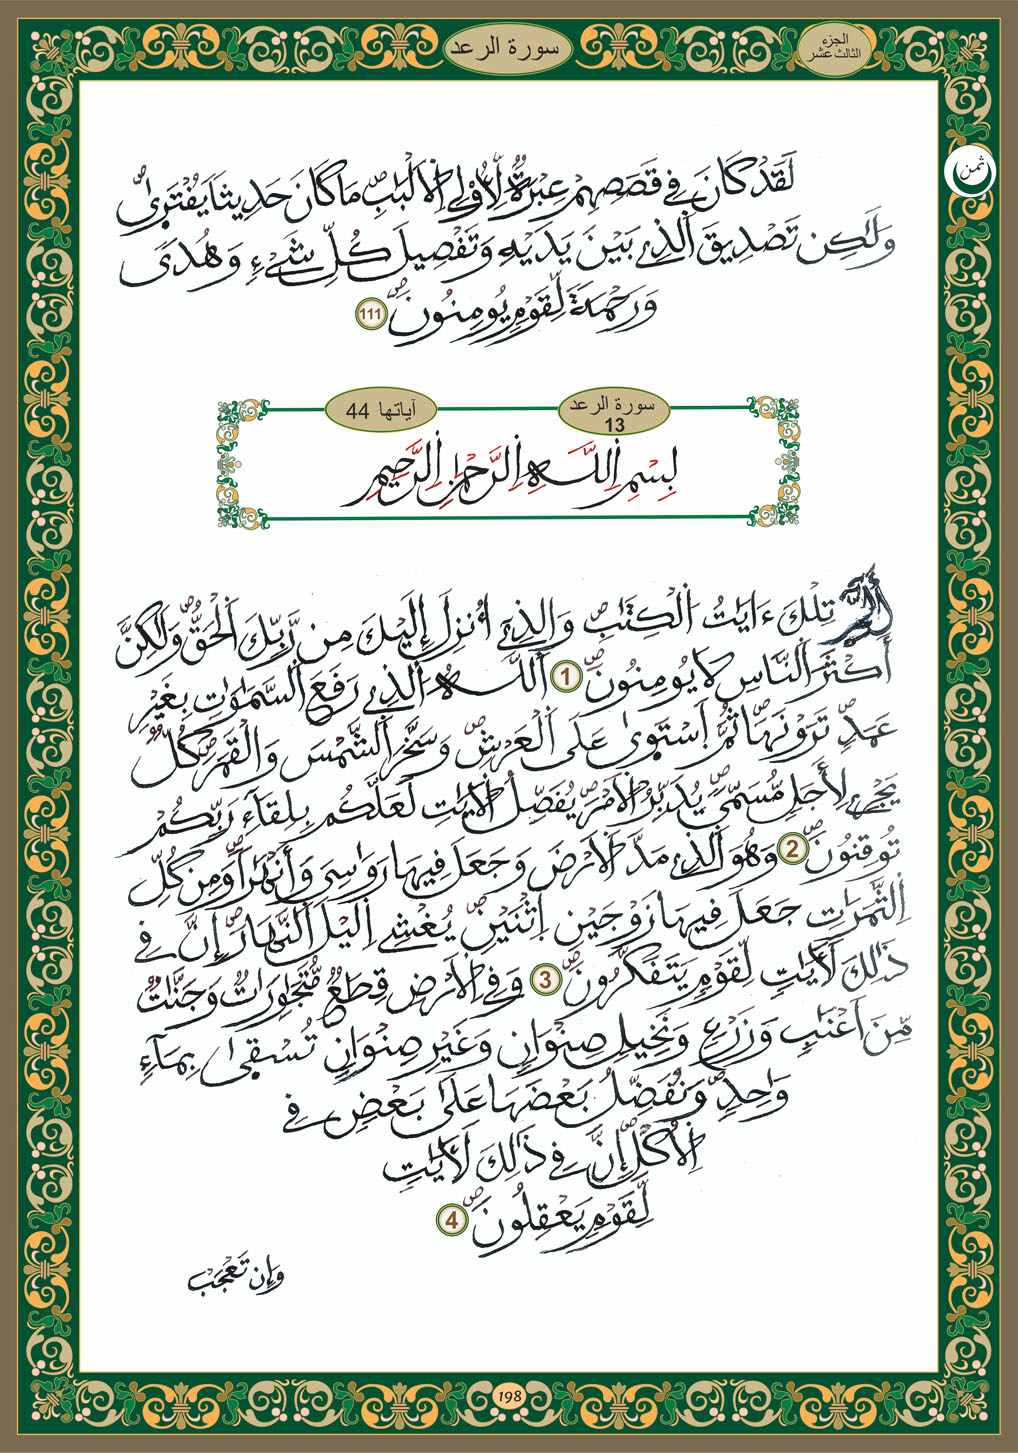 سورة الرعد
الجزء
الثالث عشر
ثمن
لَقَدْ كَانَ فِي قَصَصِهِمْ عِبْرَةٌ لِّأُوْلِي اِلَالْبَٰبِۖ مَا كَانَ حَدِيثاٗ يُفْتَرَىٰۖ
وَلَٰكِن تَصْدِيقَ اَلذِے بَيْنَ يَدَيْهِ وَتَفْصِيلَ كُلِّ شَےْءٖ وَهُدىٗ
وَرَحْمَةٗ لِّقَوْمٖ يُومِنُونَۖ 111
سورة الرعد
13
آياتها 44
بِسْمِ اِللَّهِ اِلرَّحْمَٰنِ اِلرَّحِيمِ
أَلَٓمِّٓرۖ تِلْكَ ءَايَٰتُ اُلْكِتَٰبِۖ وَالذِےٓ أُنزِلَ إِلَيْكَ مِن رَّبِّكَ اَلْحَقُّۖ وَلَٰكِنَّ
أَكْثَرَ اَلنَّاسِ لَا يُومِنُونَۖ 1 اَللَّهُ اُلذِے رَفَعَ اَلسَّمَٰوَٰتِ بِغَيْرِ
عَمَدٖ تَرَوْنَهَاۖ ثُمَّ اَسْتَوَىٰ عَلَى اَلْعَرْشِۖ وَسَخَّرَ اَلشَّمْسَ وَالْقَمَرَۖ كُلّٞ
يَجْرِے لِأَجَلٖ مُّسَمّىٗۖ يُدَبِّرُ اُلَامْرَۖ يُفَصِّلُ اُلَايَٰتِ لَعَلَّكُم بِلِقَآءِ رَبِّكُمْ
تُوقِنُونَۖ 2 وَهُوَ اَلذِے مَدَّ اَلَارْضَ وَجَعَلَ فِيهَا رَوَٰسِيَ وَأَنْهَٰراٗۖ وَمِن كُلِّ
اِلثَّمَرَٰتِ جَعَلَ فِيهَا زَوْجَيْنِ اِثْنَيْنِۖ يُغْشِے اِليْلَ اَلنَّهَارَۖ إِنَّ فِي
ذَٰلِكَ لَأٓيَٰتٖ لِّقَوْمٖ يَتَفَكَّرُونَۖ 3 وَفِي اِلَارْضِ قِطَعٞ مُّتَجَٰوِرَٰتٞ وَجَنَّٰتٞ
مِّنَ اَعْنَٰبٖ وَزَرْعٖ وَنَخِيلٖ صِنْوَانٖ وَغَيْرِ صِنْوَانٖ تُسْقَىٰ بِمَآءٖ
وَٰحِدٖۖ وَنُفَضِّلُ بَعْضَهَا عَلَىٰ بَعْضٖ فِي
اِلُاكْلِۖ إِنَّ فِي ذَٰلِكَ لَأٓيَٰتٖ
لِّقَوْمٖ يَعْقِلُونَۖ 4
وَإِن تَعْجَبْ
198